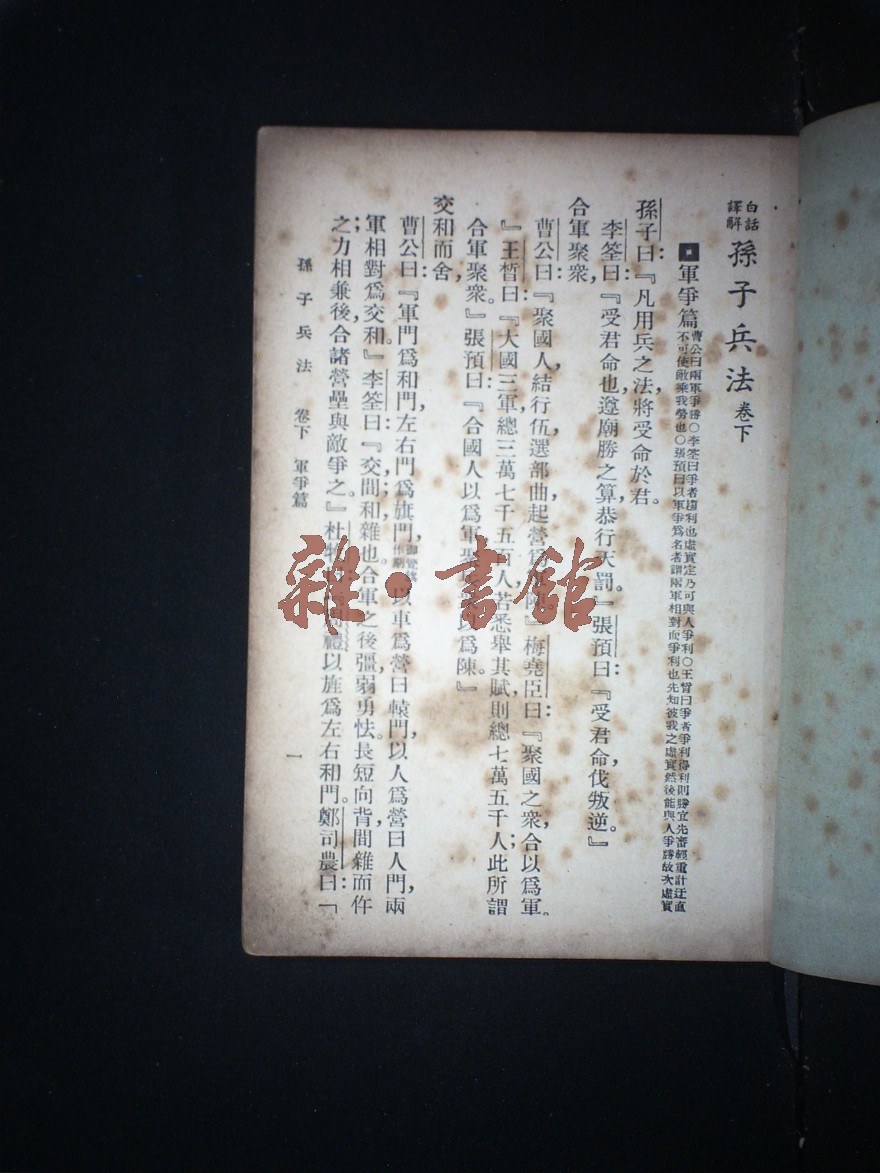 白話
譯解
孫子兵法 卷下
軍爭篇
曹公曰兩軍爭勝〇李筌曰爭者趨利也虛實定乃可與人爭利〇王晳曰爭者爭利得利則勝宜先審輕重計迂直
不可使敵乘我勞也〇張預曰以軍爭爲名者謂兩軍相對而爭利也先知彼我之虛實然後能與人爭勝故次虛實
孫子曰：『凡用兵之法，將受命於君。
李筌曰：『受君命也，遵廟勝之算，恭行天罰。』張預曰：『受君命伐叛逆。』
合軍聚衆，
曹公曰：『聚國人，結行伍，選部曲，起營爲陳。』梅堯臣曰：『聚國之衆，合以爲軍。
』王晳曰：『大國三軍，總三萬七千五百人，若悉舉其賦，則總七萬五千人；此所謂
合軍聚衆。』張預曰：『合國人以爲軍，聚以爲陳。』
交和而舍，
曹公曰：『軍門爲和門，左右門爲旗門，以車爲營曰轅門，以人爲營曰人門，兩
軍相對爲交和。』李筌曰：『交間和雜也；合軍之後，彊弱勇怯，長短向背，間雜而仵
之；力相兼，後合諸營壘與敵爭之。』杜牧以旌爲左右和門。鄭司農曰：『
孫子兵法 卷下 軍爭篇
一
雜·書館